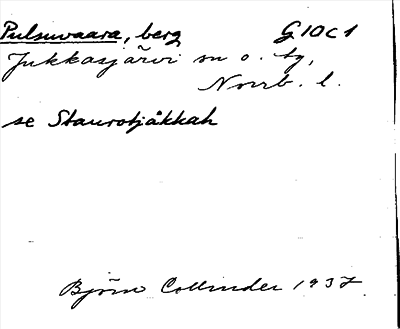 Pulsuvaara, berg G10C1
Jukkasjärvi sn o. tg,
Norrb. l.
se Staurotjåkkah
Björn Collinder 1937